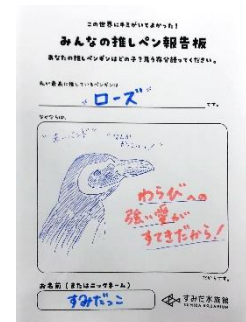 この世界にキミがいてよかった！
みんなの推しペン報告板
あなたの推しペンギンはどの子？思う存分語ってください。
私が最近に推しているペンギンは
"ローズ"
です。
なぜならば、
わらびへの
強い愛が
すてきだから！
だからです。
お名前（またはニックネーム）
すみだっこ
すみだ水族館
SUMIDA AQUARIUM